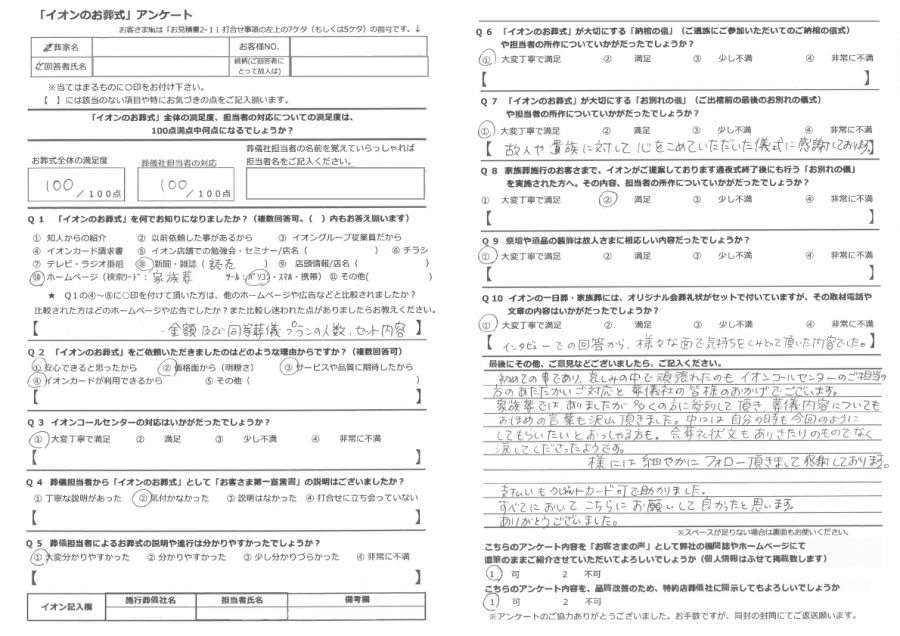 「イオンのお葬式」アンケート
お客さま№は「お見積書2-1」打合せ事項の左上の7ケタ（もしくは5ケタ）の番号です。↓
葬家名
お客様NO.
回答者氏名
続柄(ご回答者にとって故人は)
※当てはまるものに○印をお付け下さい。
【　】には該当のない項目や特にお気づきの点をご記入願います。
「イオンのお葬式」全体の満足度、担当者の対応についての満足度は、
100点満点中何点になるでしょうか？
葬儀社担当者の名前を覚えていらっしゃれば
お葬式全体の満足度
葬儀社担当者の対応
担当者名をご記入ください。
100 /100点
100 /100点
Q１　「イオンのお葬式」を何でお知りになりましたか？（複数回答可。（　）内もお答え願います）
① 知人からの紹介　② 以前依頼した事があるから　③ イオングループ従業員だから
④ イオンカード請求書　⑤ イオン店舗での勉強会・セミナー/店名（　）⑥ チラシ
⑦ テレビ・ラジオ番組　⑧ 新聞・雑誌（ 読売 ）⑨ 店頭情報/店名（　）
⑩ ホームページ（検索ワード：家族葬　ツール：パソコン・スマホ・携帯）⑪ その他(　)
★　Q１の④～⑧に○印を付けて頂いた方は、他のホームページや広告などと比較されましたか？
比較された方はどのホームページや広告でしたか？また比較し迷われた点がありましたらお教えください。
【　・金額及び同等葬儀プランの人数、セット内容　】
Q２　「イオンのお葬式」をご依頼いただきましたのはどのような理由からですか？（複数回答可）
① 安心できると思ったから　② 価格面から（明瞭さ）　③ サービスや品質に期待したから
④ イオンカードが利用できるから　⑤ その他（　）
【　】
Q３　イオンコールセンターの対応はいかがだったでしょうか？
① 大変丁寧で満足　② 満足　③ 少し不満　④ 非常に不満
【　】
Q４　葬儀担当者から「イオンのお葬式」として「お客さま第一宣言書」の説明はございましたか？
① 丁寧な説明があった　② 気付かなかった　③ 説明はなかった　④ 打合せに立ち会っていない
【　】
Q５　葬儀担当者によるお葬式の説明や進行は分かりやすかったでしょうか？
① 大変分かりやすかった　② 分かりやすかった　③ 少し分かりづらかった　④ 非常に不満
【　】
イオン記入欄
施行葬儀社名
担当者氏名
備考欄
Q６　「イオンのお葬式」が大切にする「納棺の儀」（ご遺族にご参加いただいてのご納棺の儀式）
や担当者の所作についていかがだったでしょうか？
① 大変丁寧で満足　② 満足　③ 少し不満　④ 非常に不満
【　】
Q７　「イオンのお葬式」が大切にする「お別れの儀」（ご出棺前の最後のお別れの儀式）
や担当者の所作についていかがだったでしょうか？
① 大変丁寧で満足　② 満足　③ 少し不満　④ 非常に不満
【 故人や貴族に対して心をこめていただいた儀式に感謝しております。】
Q８　家族葬施行のお客さまで、イオンがご提案しております通夜式終了後にも行う「お別れの儀」
を実施された方へ。その内容、担当者の所作についていかがだったでしょうか？
① 大変丁寧で満足　② 満足　③ 少し不満　④ 非常に不満
【　】
Q９　祭壇や道品の装飾は故人さまに相応しい内容だったでしょうか？
① 大変丁寧で満足　② 満足　③ 少し不満　④ 非常に不満
【　】
Q10　イオンの一日葬・家族葬には、オリジナル会葬礼状がセットで付いていますが、その取材電話や
文章の内容はいかがだったでしょうか？
① 大変丁寧で満足　② 満足　③ 少し不満　④ 非常に不満
【 インタビューでの回答から、様々な面で気持ちをくみとって頂いた内容でした。】
最後にその他、ご意見などございましたら、ご記入ください。
初めての事であり、哀しみの中で頑張れたのもイオンコールセンターのご担当の
方のあたたかいご対応と葬儀社の皆様のおかげでございます。
家族葬では、ありましたが多くの方に参列して頂き、葬儀内容についても
おほめの言葉も沢山頂きました。中には自分の時も今回のように
してもらいたいとおっしゃる方も。会葬礼状文もありきたりのものでなく
涙してくださったようです。
様には細やかにフォロー頂きまして感謝しております。
支払いもクレジットカード可で助かりました。
すべてにおいてこちらにお願いして良かったと思います。
ありがとうございました。
※スペースが足りない場合は裏面もお使いください。
こちらのアンケート内容を「お客さまの声」として弊社の機関誌やホームページにて
直筆のままご紹介させていただいてよろしいでしょうか（個人情報はふせて掲載致します）
1　可　2　不可
こちらのアンケート内容を、品質改善のため、特約店葬儀社に開示してもよろしいでしょうか
1　可　2　不可
※アンケートのご協力ありがとうございました。お手数ですが、同封の封筒にてご返送願います。